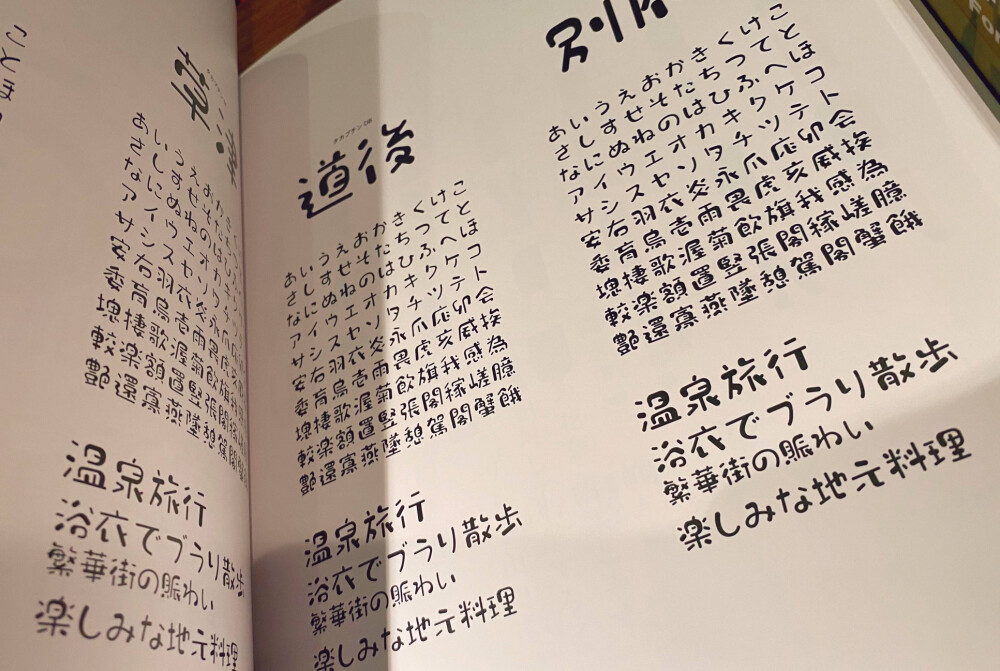 ことほ
草津
あいうえおかき
さしすせそた
なにぬねのは
アイウエオカ
サシスセソタ
安右羽衣炎永
委育烏壱雨畏
塊棲歌渥菊飲
較楽額置竪張閣
艶還寡燕墜憩駕閣
温泉旅行
浴衣でブラリ散歩
繁華街の賑わい
楽しみな地元料理
道後
あいうえおかきくけこ
さしすせそたちつてと
なにぬねのはひふへほ
アイウエオカキクケコ
サシスセソタチツテト
安右羽衣炎永爪応卯会
委育烏壱雨畏虎亥威挨
塊棲歌渥菊飲旗我感為
較楽額置竪張閣稼嵯臆
艶還寡燕墜憩駕閣蟹餓
温泉旅行
浴衣でブラリ散歩
繁華街の賑わい
楽しみな地元料理
別府
あいうえおかきくけこ
さしすせそたちつてと
なにぬねのはひふへほ
アイウエオカキクケコ
サシスセソタチツテト
安右羽衣炎永爪応卯会
委育烏壱雨畏虎亥威挨
塊棲歌渥菊飲旗我感為
較楽額置竪張閣稼嵯臆
艶還寡燕墜憩駕閣蟹餓
温泉旅行
浴衣でブラリ散歩
繁華街の賑わい
楽しみな地元料理